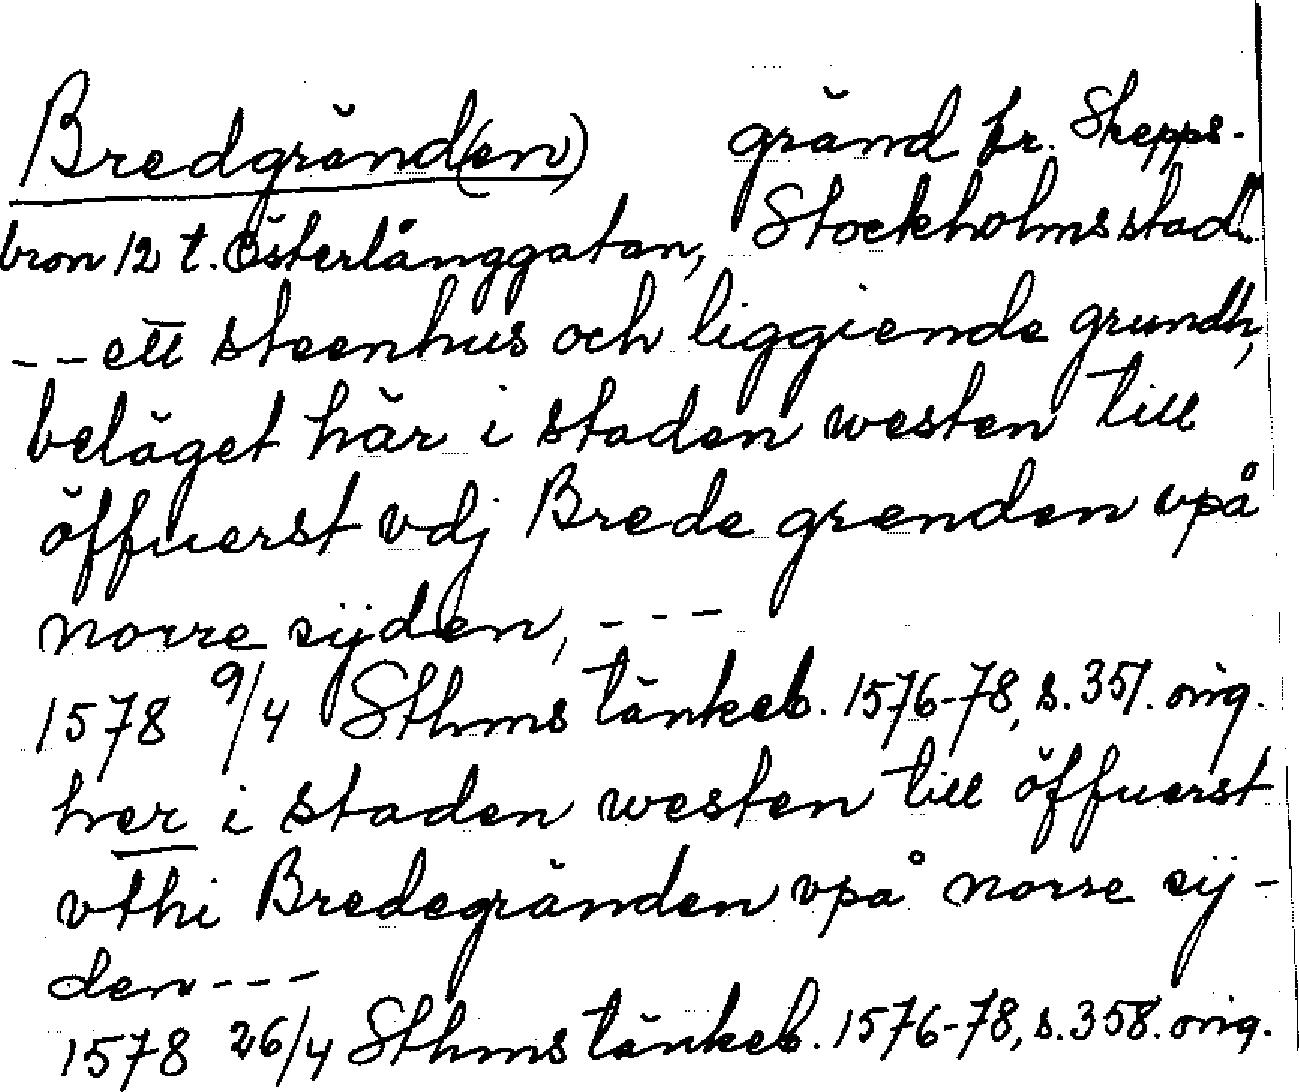 Bredgränd(en) gränd fr. Skepps-
bron 12 t. Österlånggatan, Stockholms stad.
--ett steenhus och liggiende grundh,
beläget här i staden westen till
öffuerst vdj Brede grenden vpå
norre sijden, ---
1578 9/4 Sthms tänkeb. 1576-78, s. 357. orig.
her i staden westen till öffuerst
vthi Bredegränden vpå norre sij-
den---
1578 26/4 Sthms tänkeb. 1576-78, s. 358. orig.